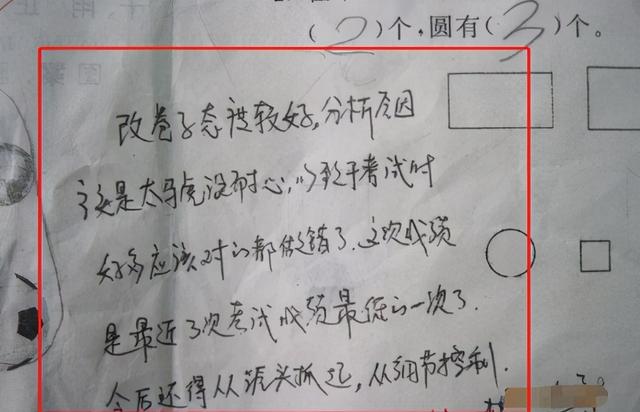 (2)个,圆有(3)个。
改卷子态度较好,分析原因
主要是太马虎没耐心,以致于考试时
好多应该对的都做错了.这次成绩
是最近几次考试成绩最低的一次了.
今后还得从源头抓起,从细节控制.